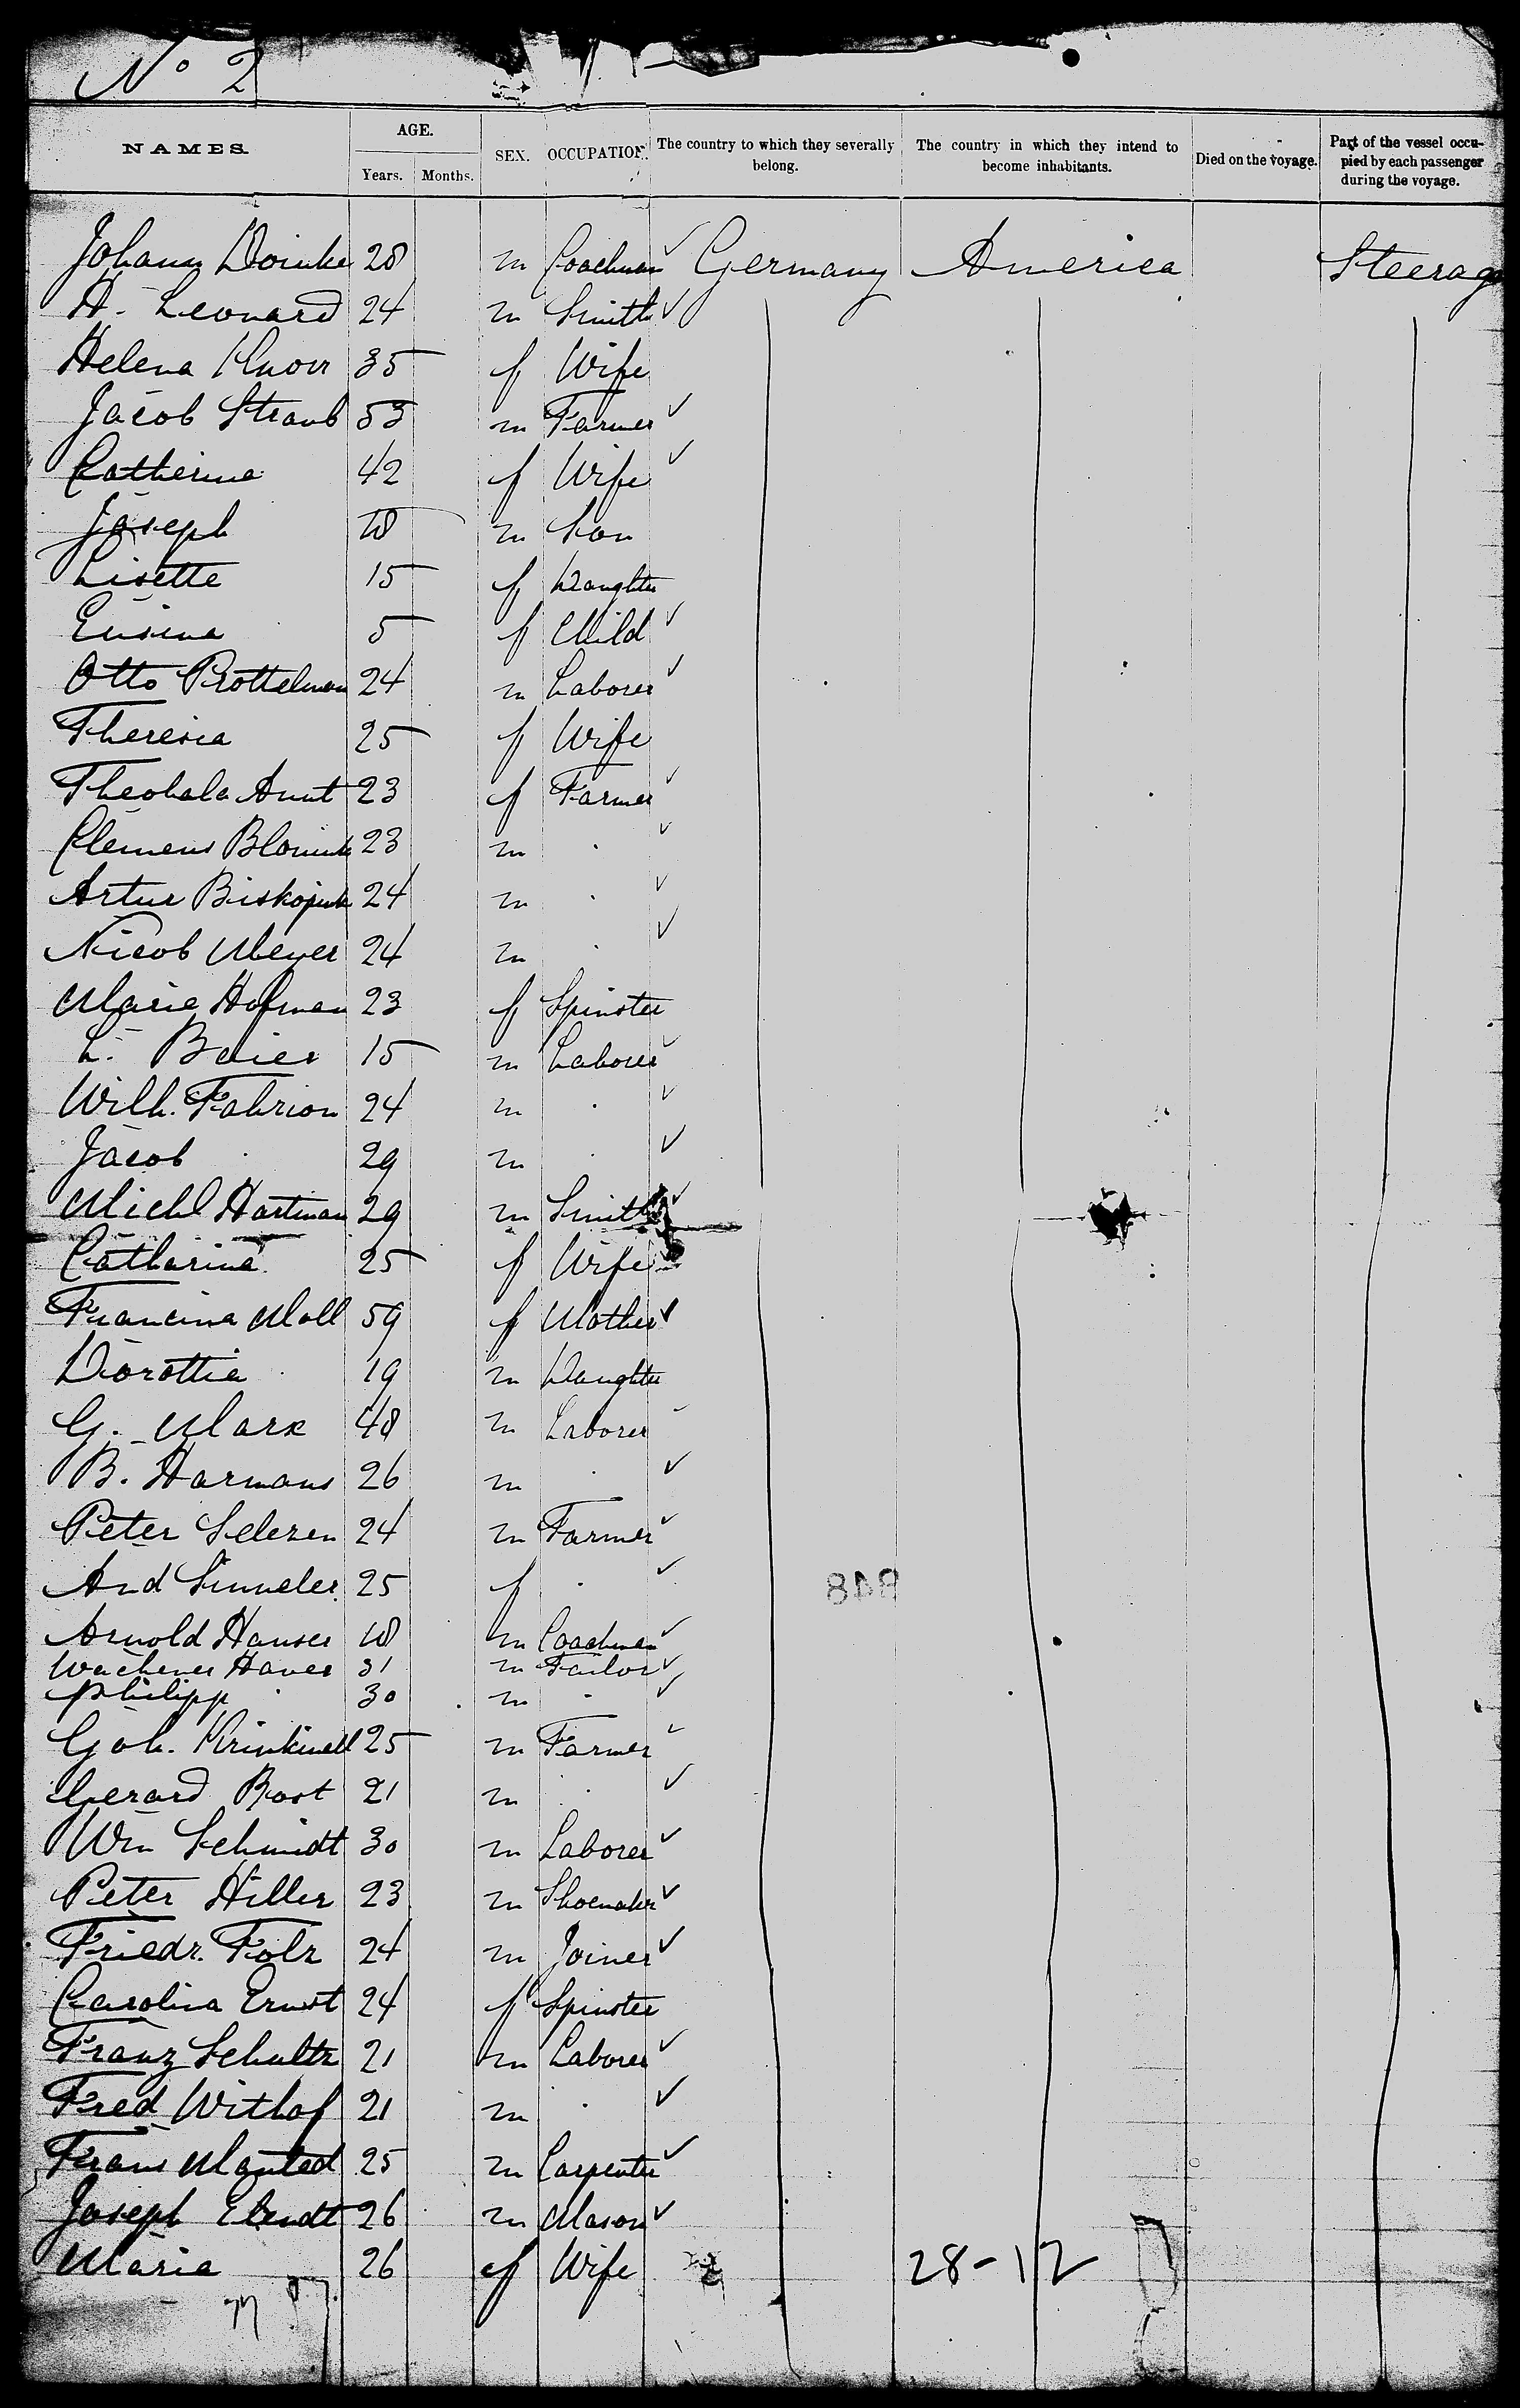 No 2
NAMES. AGE. Years. Months. SEX. OCCUPATION. The country to which they severally belong. The country in which they intend to become inhabitants. Died on the voyage. Part of the vessel occupied by each passenger during the voyage.
Johann 28 m Coachman Germany America Steerage
H. Leonard 24 m Smith
Helena Knorr 35 f Wife
Jacob Straub 53 m Farmer
Catherina 42 f Wife
Joseph 18 m Son
Lisette 15 f Daughter
5 f Child
Otto Prottelman 24 m Laborer
Theresia 25 f Wife
Theobala 23 f Farmer
Clemens 23 m
Artur 24 m
Nicob Meyer 24 m
Marie Hofman 23 f Spinster
L. Baier 15 m Laborer
Wilh. Fahrion 24 m
Jacob 29 m
Michl Hartman 29 m Smith
Catharina 25 f Wife
Francina Moll 59 f Mother
Dorottia 19 m Daughter
G. Marx 48 m Laborer
B. Harmans 26 m
Peter Selezen 24 m Farmer
And 25 f
848
Arnold Hauser 18 m Coachman
Haver 31 m Tailor
Philipp 30 m
Goh. 25 m Farmer
Gerard Bost 21 m
Wm Schmidt 30 m Laborer
Peter Hiller 23 m Shoemaker
Friedr. Folz 24 m Joiner
Carolina Ernst 24 f Spinster
Franz Schultz 21 m Laborer
Fred Withof 21 m
Frans Manted 25 m Carpenter
Joseph Elendt 26 m Mason
Maria 26 f Wife
28-12